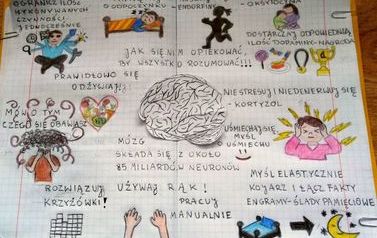 OGRANICZ ILOŚĆ
WYKONYWANYCH
CZYNNOŚCI
JEDNOCZEŚNIE
O ODPOCZYNKU
ENDORFINY
OKSYTOCYNA
DOSTARCZAJ ODPOWIEDNIĄ
ILOŚĆ DOPAMINY-NAGRODA
JAK SIĘ NIM OPIEKOWAĆ,
BY WSZYSTKO ROZUMOWAĆ!!!
PRAWIDŁOWO SIĘ
ODŻYWIAJ!
NIE STRESUJ I NIE DENERWUJ SIĘ
- KORTYZOL
MÓW O TYM
CZEGO SIĘ OBAWIASZ
UŚMIECHAJ SIĘ,
MYŚL
O UŚMIECHU
MÓZG
SKŁADA SIĘ Z OKOŁO
85 MILIARDÓW NEURONÓW
MYŚL ELASTYCZNIE
KOJARZ I ŁĄCZ FAKTY
ENGRAMY-ŚLADY PAMIĘCIOWE
ROZWIĄZUJ
KRZYŻÓWKI!
UŻYWAJ RĄK!
PRACUJ
MANUALNIE